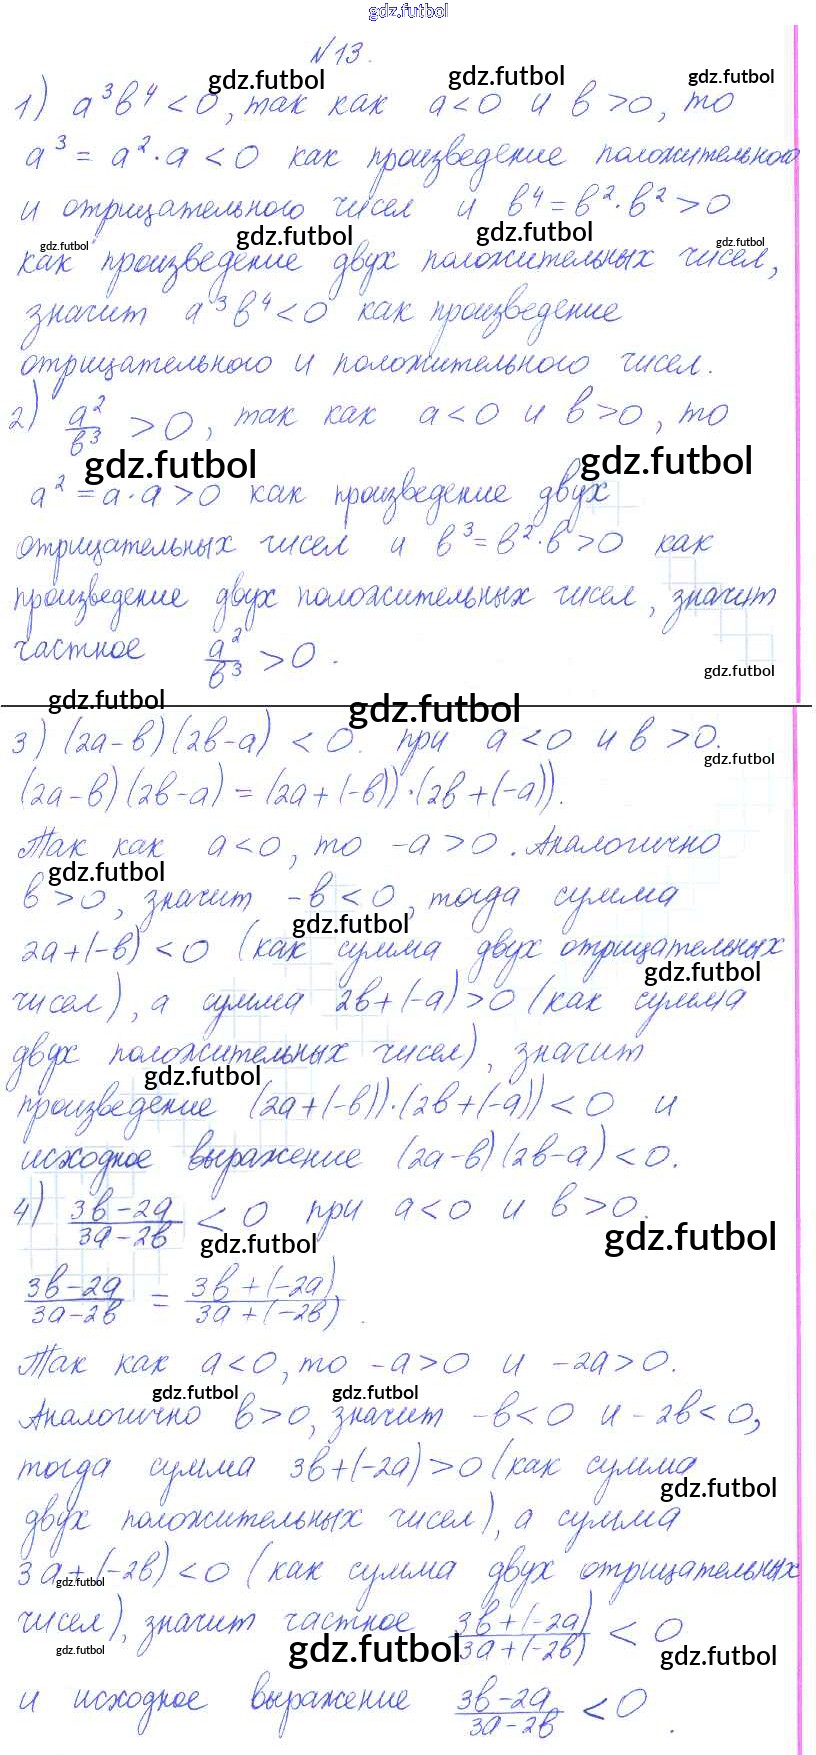 gdz.futbol
N 13.
gdz.futbol gdz.futbol gdz.futbol
1) a³b⁴ < 0, так как a < 0 и b > 0, то
a³ = a² · a < 0 как произведение положительного
и отрицательного чисел и b⁴ = b² · b² > 0
gdz.futbol gdz.futbol gdz.futbol gdz.futbol
как произведение двух положительных чисел,
значит a³b⁴ < 0 как произведение
отрицательного и положительного чисел.
2) a²/b³ > 0, так как a < 0 и b > 0, то
gdz.futbol gdz.futbol
a² = a · a > 0 как произведение двух
отрицательных чисел и b³ = b² · b > 0 как
произведение двух положительных чисел, значит
частное a²/b³ > 0.
gdz.futbol
gdz.futbol gdz.futbol
3) (2a - b)(2b - a) < 0. при a < 0 и b > 0.
gdz.futbol
(2a - b)(2b - a) = (2a + (-b)) · (2b + (-a)).
Так как a < 0, то -a > 0. Аналогично
gdz.futbol
b > 0, значит -b < 0, тогда сумма
gdz.futbol
2a + (-b) < 0 (как сумма двух отрицательных
gdz.futbol
чисел), а сумма 2b + (-a) > 0 (как сумма
двух положительных чисел), значит
gdz.futbol
произведение (2a + (-b)) · (2b + (-a)) < 0 и
исходное выражение (2a - b)(2b - a) < 0.
4) (3b - 2a)/(3a - 2b) < 0 при a < 0 и b > 0.
gdz.futbol gdz.futbol
(3b - 2a)/(3a - 2b) = (3b + (-2a))/(3a + (-2b)).
Так как a < 0, то -a > 0 и -2a > 0.
gdz.futbol gdz.futbol
Аналогично b > 0, значит -b < 0 и -2b < 0,
тогда сумма 3b + (-2a) > 0 (как сумма
gdz.futbol
двух положительных чисел), а сумма
3a + (-2b) < 0 (как сумма двух отрицательных
gdz.futbol
чисел), значит частное (3b + (-2a))/(3a + (-2b)) < 0
gdz.futbol gdz.futbol gdz.futbol
и исходное выражение (3b - 2a)/(3a - 2b) < 0.